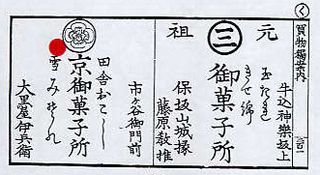 く
買物獨案内
牛込神樂坂上
元
祖
三
玉だれ
きせ綿
御菓子所
保坂山城掾
藤原敎推
市ヶ谷御門前
田舎おこし
京御菓子所
雪みぞれ
大黒屋伊兵衛